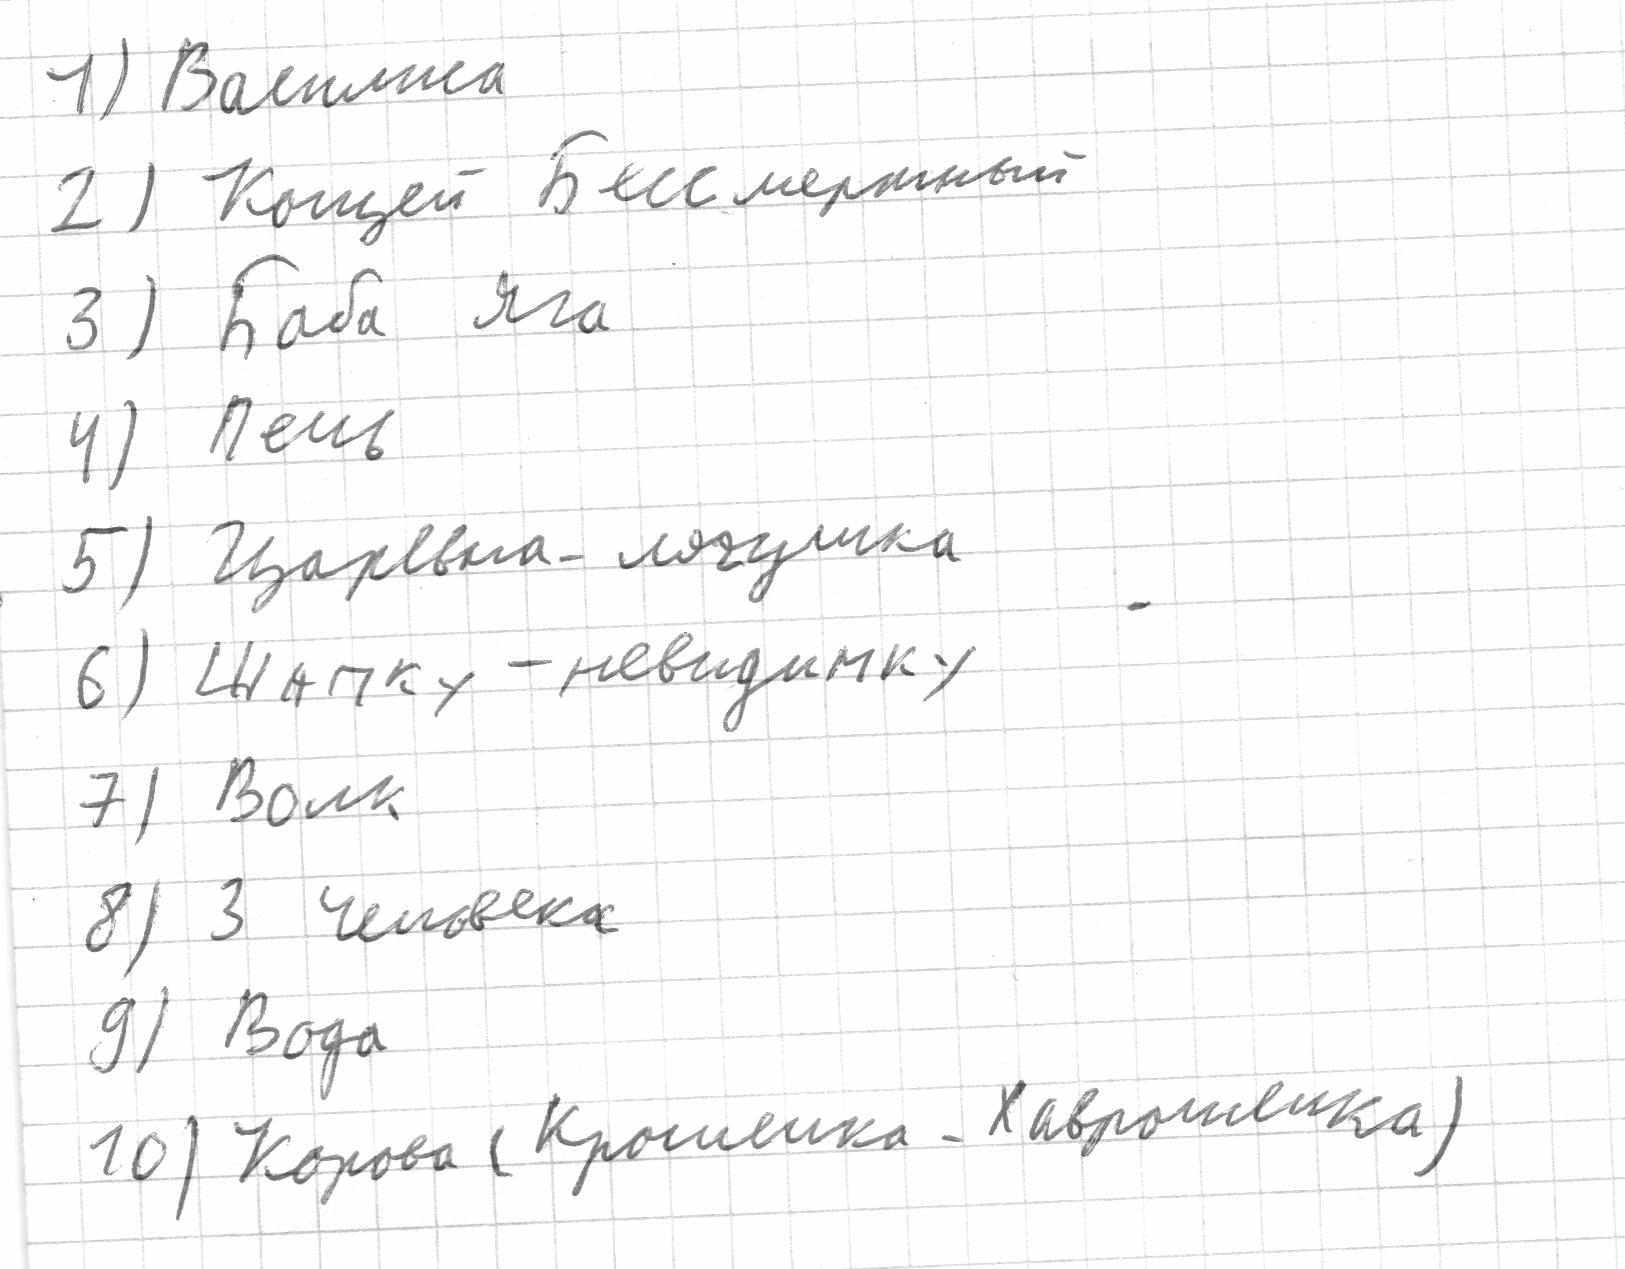 1) Василиса
2) Кощей Бессмертный
3) Баба Яга
4) Печь
5) Царевна-лягушка
6) Шапку-невидимку
7) Волк
8) 3 человека
9) Вода
10) Корова (Крошечка-Хаврошечка)